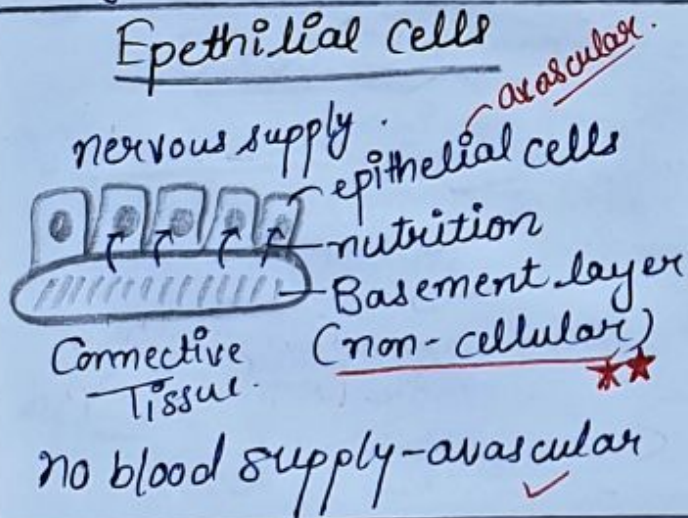 Epethilial cells
avascular.
nervous supply.
epithelial cells
nutrition
Basement layer
(non-cellular)
Connective
Tissue.
no blood supply-avascular